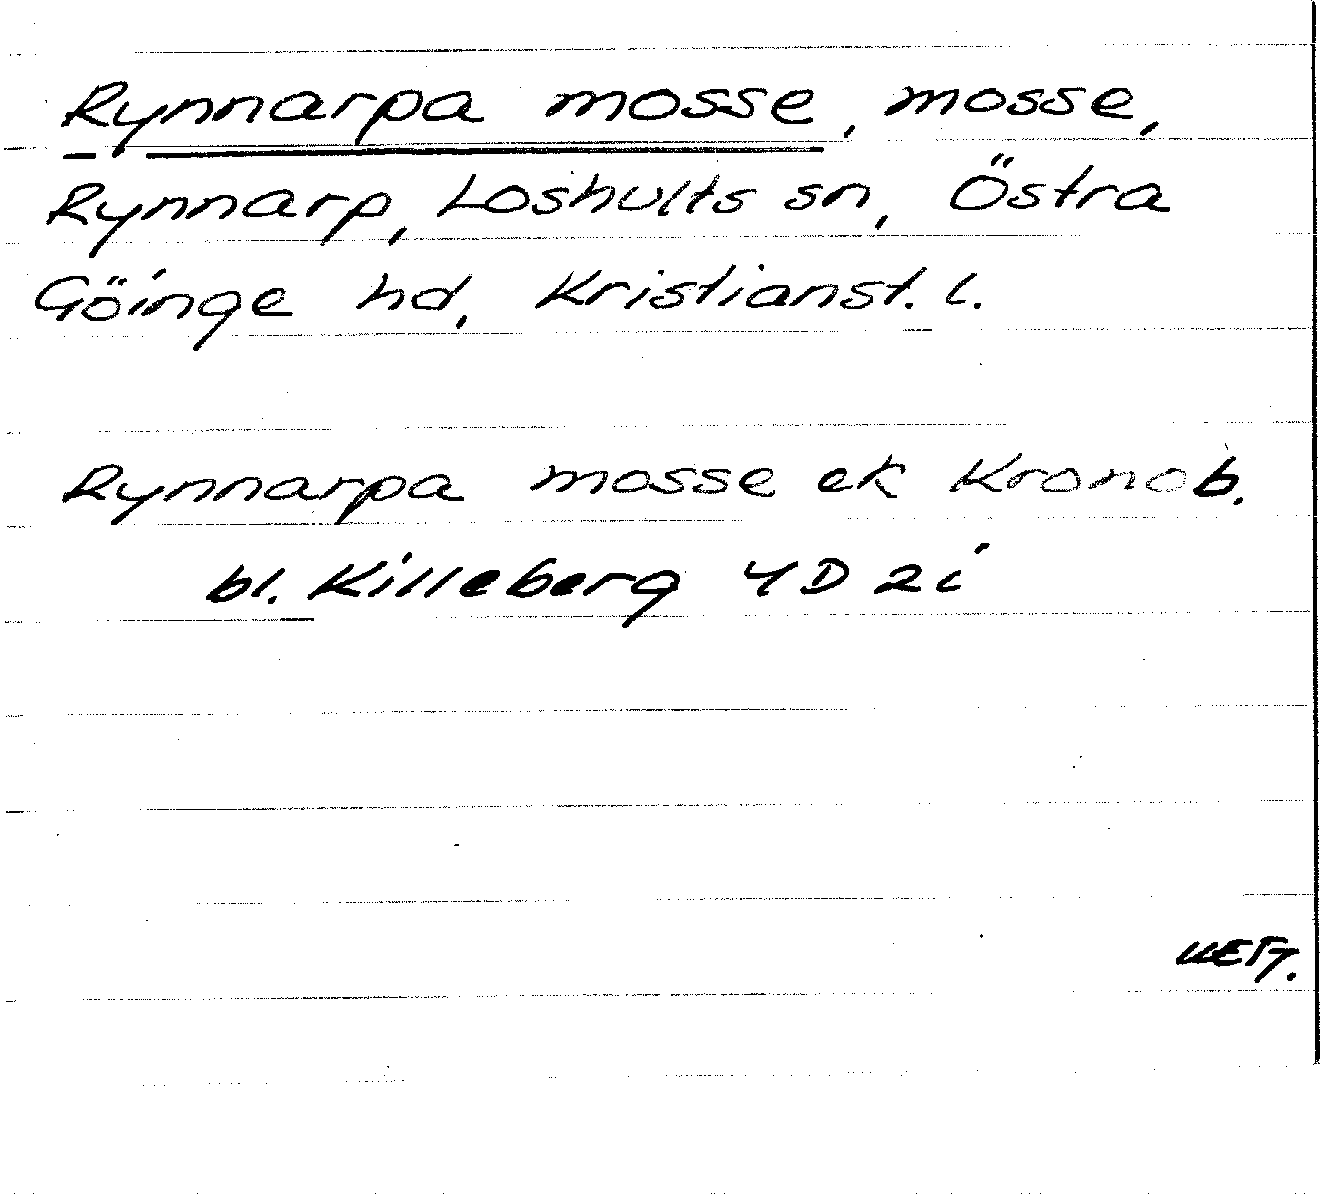 Rynnarpa mosse, mosse,
Rynnarp, Loshults sn, Östra
Göinge hd, Kristianst. l.
Rynnarpa mosse ek Kronob.
bl. Killeberg 4D 2i